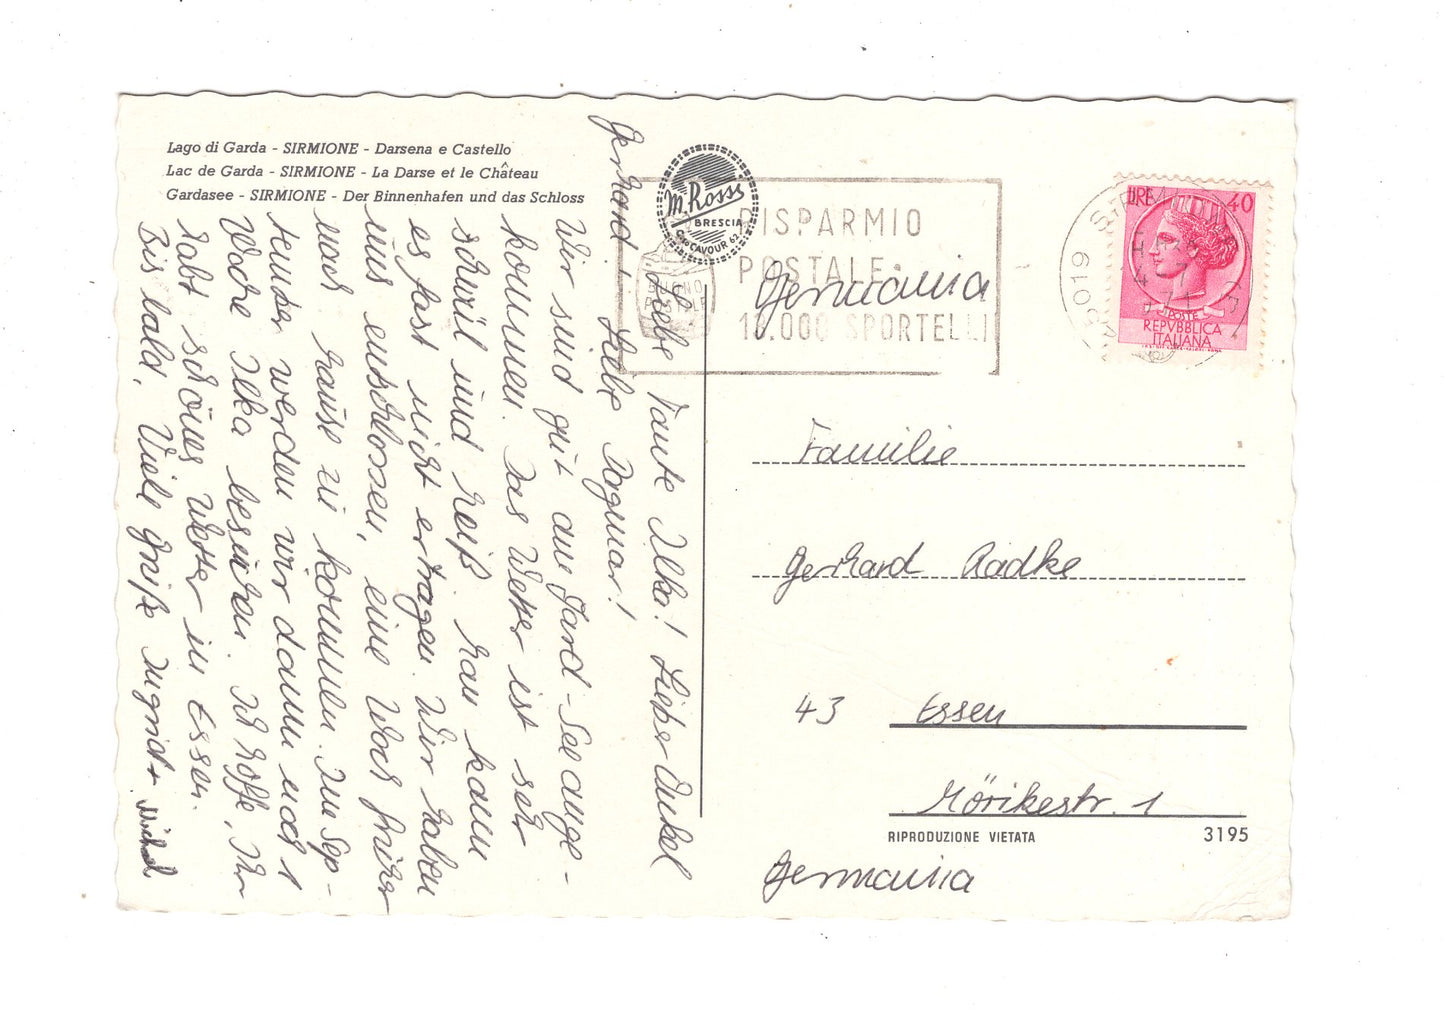 Lago di Garda - SIRMIONE - Darsena e Castello
Lac de Garda - SIRMIONE - La Darse et le Château
Gardasee - SIRMIONE - Der Binnenhafen und das Schloss
M. Rossi
BRESCIA
C.so CAVOUR 62
RISPARMIO
POSTALE
BUONO
POSTALE
18.000 SPORTELLI
25019 SIRMIONE
4 7 71
LIRE 40
POSTE
REPVBBLICA
ITALIANA
Germania
Familie
Gerhard Radke
43 Essen
Mörikestr. 1
RIPRODUZIONE VIETATA 3195
Germania
Liebe Tante Ilka! Lieber Onkel
Gerhard! Liebe Dagmar!
Wir sind gut am Gard-See ange-
kommen. Das Wetter ist sehr
schwül und heiß. Man kann
es fast nicht ertragen. Wir haben
uns entschlossen, eine Woche früher
nach Hause zu kommen. Im Sep-
tember werden wir dann noch 1
Woche Ilka besuchen. Ich hoffe, Ihr
habt schönes Wetter in Essen.
Bis bald. Viele Grüße Ingrid + Michael